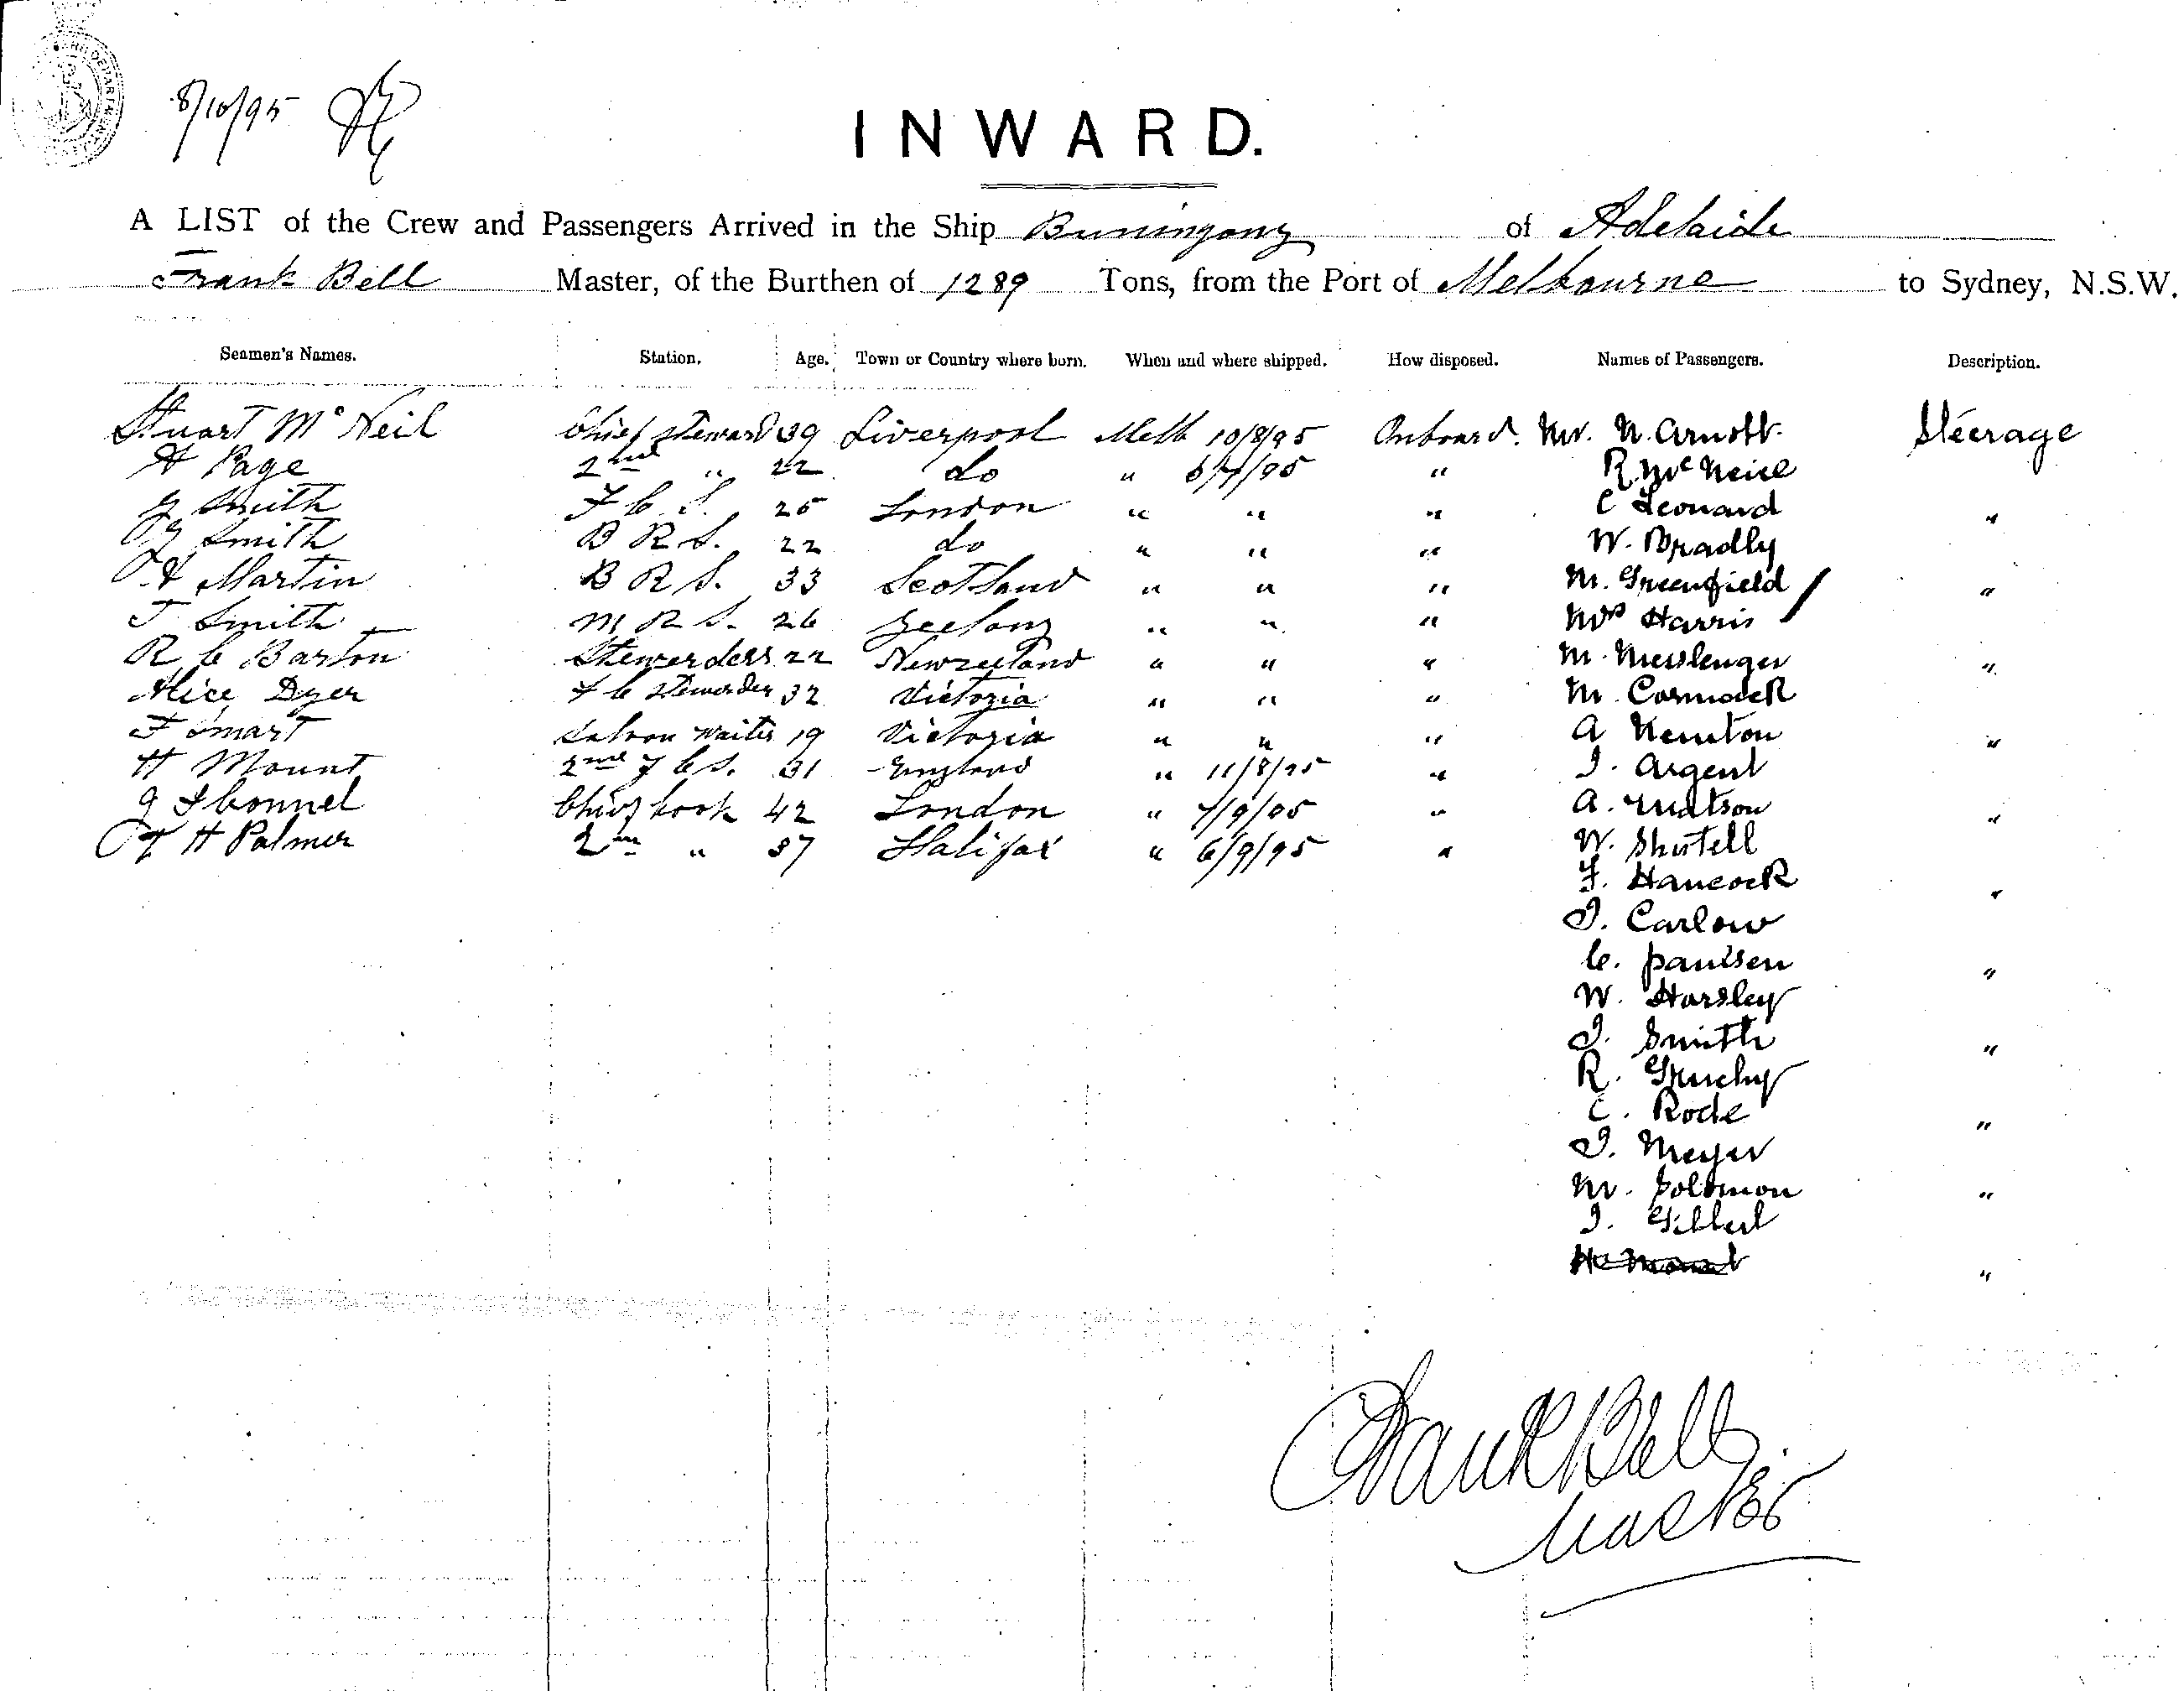 8/10/95
INWARD.
A LIST of the Crew and Passengers Arrived in the Ship Buningong of Adelaide
Frank Bell Master, of the Burthen of 1289 Tons, from the Port of Melbourne to Sydney, N.S.W.
Seamen's Names. Station. Age. Town or Country where born. When and where shipped. How disposed. Names of Passengers. Description.
Stuart Mc Neil Chief Steward 39 Liverpool Melb 10/8/95 Onboard. Mr. N. Arnott. Steerage
A Page 2nd " 22 do " /95 " R. McNeice
Smith F C S. 25 London " " " C Leonard "
Smith B R S. 22 do " " " W. Bradly
Martin B R S. 33 Scotland " " " M. Greenfield "
T Smith M R S. 26 Geelong " " " Mrs Harris
R C Barton Stewerdess 22 Newzeeland " " " M. Messlenger "
Alice Dyer F C Stewerdes 32 Victoria " " " M. Cormack
F Smart Saloon Waiter 19 Victoria " " " A Newton "
H Mount 2nd F C S. 31 England " 11/8/95 " J. Argent
Chief Cook 42 London " 7/9/95 " A. Watson "
H Palmer 2nd " 37 Halifax " 6/9/95 " W. Shutell
F. Hancock "
J. Carlow
C. Paulsen "
W. Harsley
J. Smith "
R. Gruchy
C. Rode "
J. Meyer
M. Solomon "
J. Gilbert
H. Mount "
Frank Bell
Master